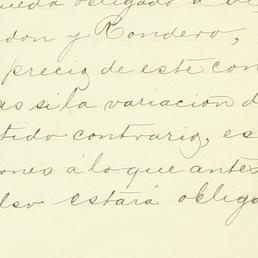 ueda obligado a de
don y Rondero,
precio de este con
as si la variación d
tido contrario, es
ones á lo que antes
lso estará obliga